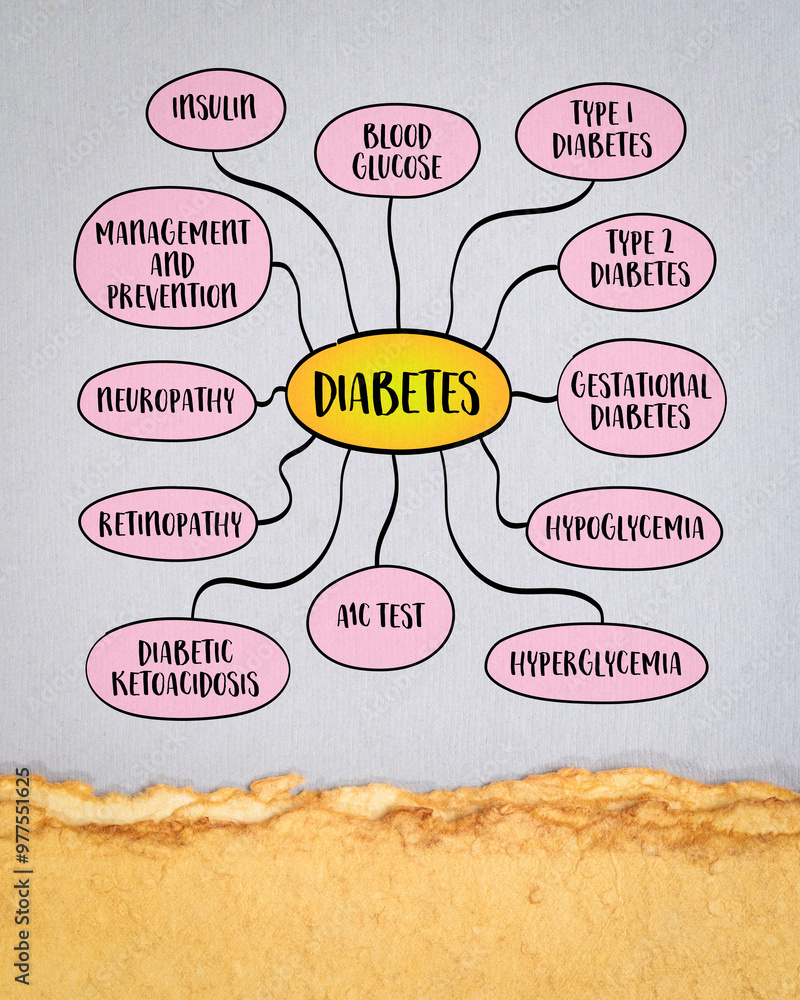 INSULIN
BLOOD
GLUCOSE
TYPE 1
DIABETES
MANAGEMENT
AND
PREVENTION
TYPE 2
DIABETES
NEUROPATHY
DIABETES
GESTATIONAL
DIABETES
RETINOPATHY
HYPOGLYCEMIA
DIABETIC
KETOACIDOSIS
A1C TEST
HYPERGLYCEMIA
Adobe Stock | #977551625